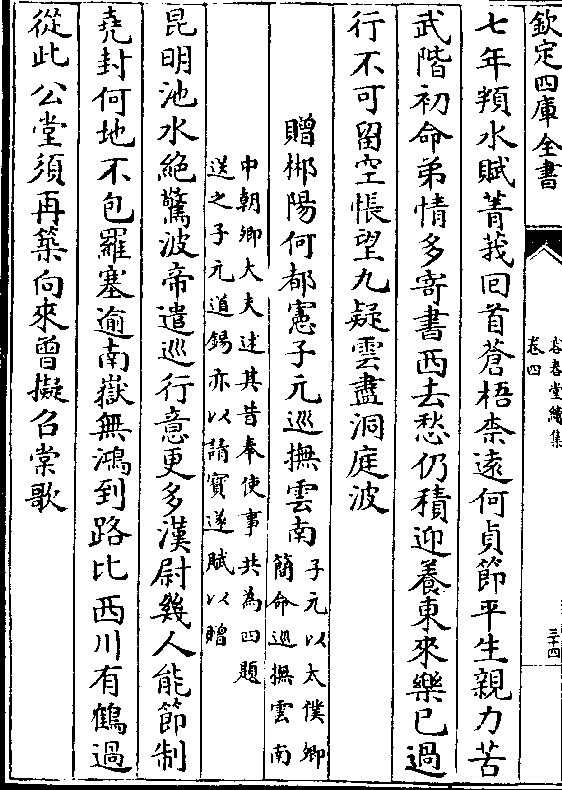 欽定四庫全書
容春堂續集
卷四
三十四
七年頖水賦菁莪回首蒼梧柰遠何貞節平生親力苦
武階初命弟情多寄書西去愁仍積迎養東來樂已過
行不可留空悵望九疑雲盡洞庭波
贈郴陽何都憲子元巡撫雲南
子元以太僕卿
簡命巡撫雲南
中朝卿大夫述其昔奉使事共為四題
送之子元道錫亦以請實遂賦以贈
昆明池水絶驚波帝遣巡行意更多漢尉幾人能節制
堯封何地不包羅塞逾南嶽無鴻到路比西川有鶴過
從此公堂須再築向來曾擬召棠歌